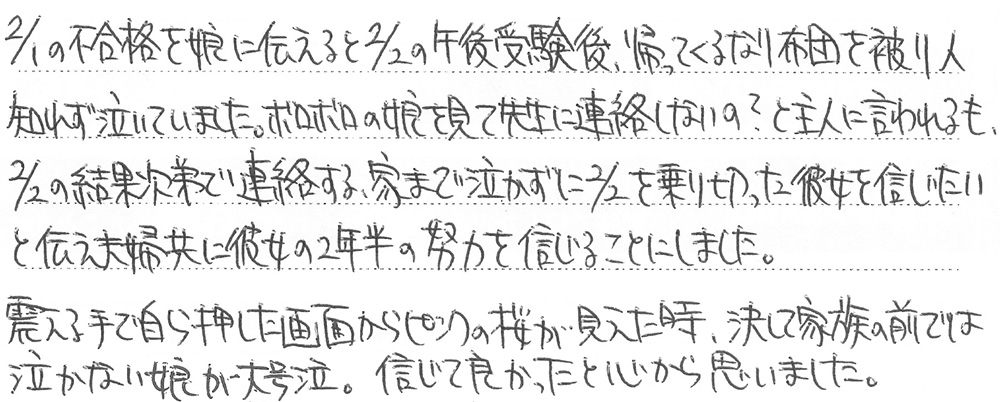 2/1の不合格を娘に伝えると2/2の午後受験後、帰ってくるなり布団を被り人
知れず泣いていました。ボロボロの娘を見て先生に連絡しないの？と主人に言われるも、
2/2の結果次第で連絡する、家まで泣かずに2/2を乗り切った彼女を信じたい
と伝え夫婦共に彼女の2年半の努力を信じることにしました。
震える手で自ら押した画面からピンクの桜が見えた時、決して家族の前では
泣かない娘が大号泣。信じて良かったと心から思いました。